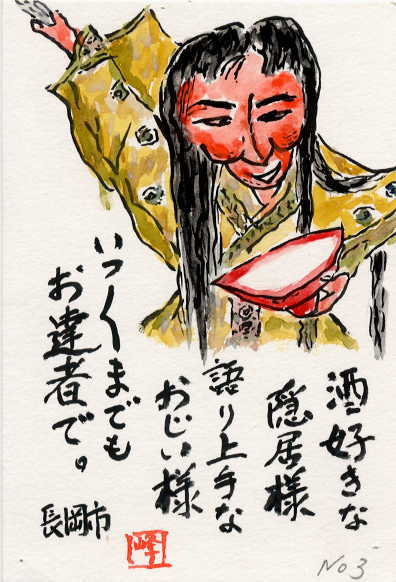 酒好きな
隠居様
語り上手な
おじい様
いつ〱までも
お達者で。
長岡市
峰
No 3